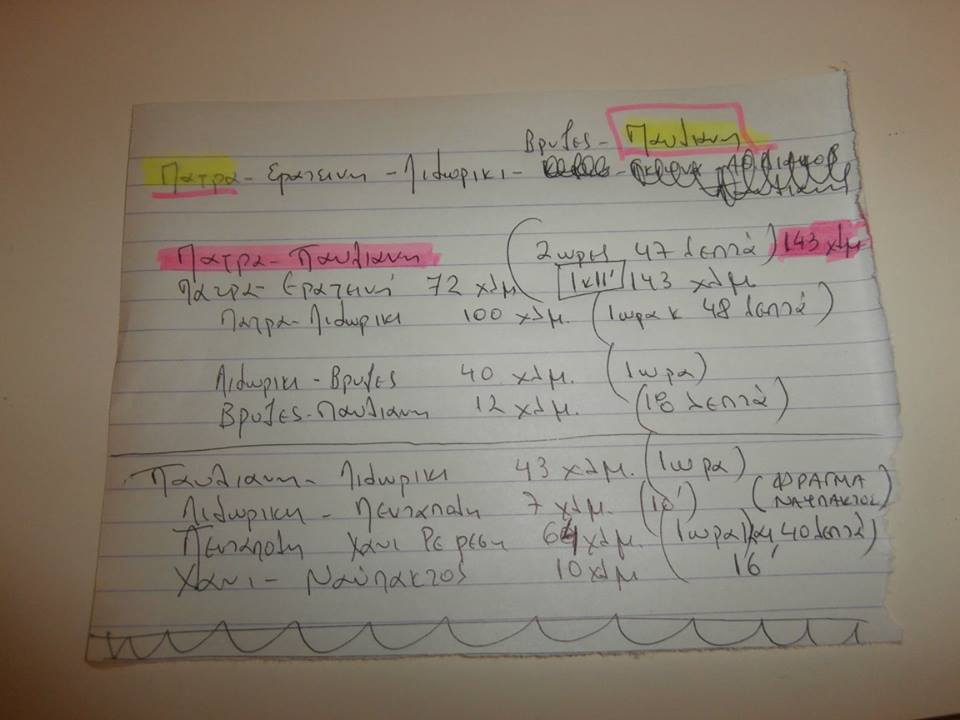 Βρυζες - Παυλιανη
Πατρα - Ερατεινη - Λιδωρικι -
Πατρα - Παυλιανη (2 ωρες 47 λεπτά) 143 χλμ
Πατρα - Ερατεινή 72 χλμ 143 χλμ
Πατρα - Λιδωρικι 100 χλμ. (1 ωρα κ 48 λεπτά)
Λιδωρικι - Βρυζες 40 χλμ. (1 ωρα)
Βρυζες - Παυλιανη 12 χλμ. (18 λεπτά)
Παυλιανη - Λιδωρικι 43 χλμ. (1 ωρα)
Λιδωρικη - Πενταπολη 7 χλμ. (10') (ΦΡΑΓΜΑ
ΝΑΥΠΑΚΤΟΣ)
Πενταπολη Χανι 64 χλμ. (1 ωρα και 40 λεπτά)
Χανι - Ναύπακτος 10 χλμ (16'